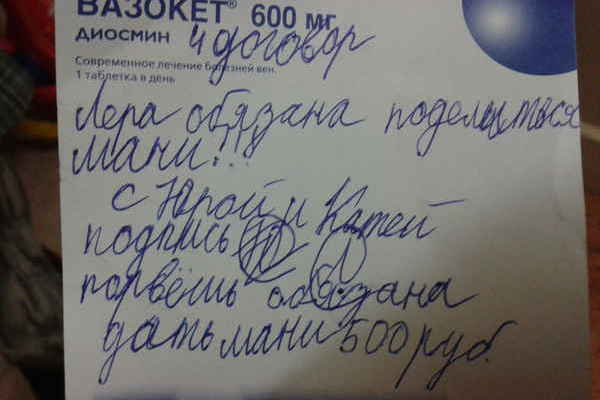 ВАЗОКЕТ® 600 мг
ДИОСМИН
ч договор
Современное лечение болезней вен.
1 таблетка в день
Лера обязана поделиться
мани!!!
с Юрой и Катей
подпись
порвёшь обязана
дать мани 500 руб.